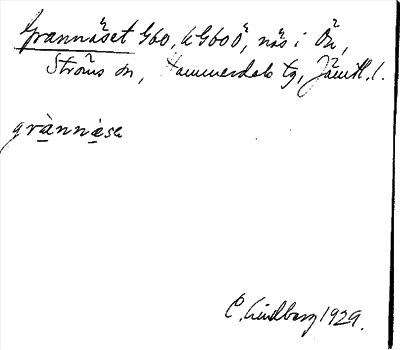 Grannäset Gbo, k Gbo Ö, näs i Ön,
Ströms sn, Hammerdals tg, Jämtl. l.
grànnèse
C. Lindberg 1929.